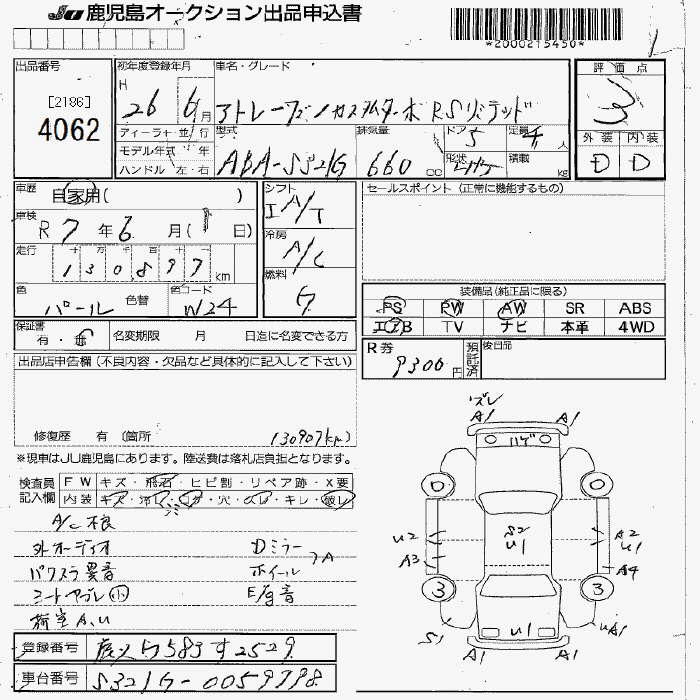 JU 鹿児島オークション出品申込書
*2000215450*
出品番号
[2186]
4062
初年度登録年月
H 26 6月
ディーラー・並行
モデル年式 年
ハンドル 左・右
車名・グレード
アトレーワゴン カスタムターボRSリミテッド
型式
ABA-S321G
排気量
660 cc
ドア
5
形状
定員
4人
積載
kg
評価点
3
外装 内装
D D
車歴
自家用( )
車検
R 7年6月( 日)
走行
十 万 千 百 十
130,897 km
色
パール 色替
色コード
W24
シフト
I A/T
冷房
A/C
燃料
G
セールスポイント (正常に機能するもの)
装備品(純正品に限る)
PS PW AW SR ABS
エアB TV ナビ 本革 4WD
保証書
有・無
名変期限 月 日迄に名変できる方
R券
9300円
預託済
後日品
出品店申告欄(不良内容・欠品など具体的に記入して下さい)
修復歴 有(箇所
130907km)
※現車はJU鹿児島にあります。陸送費は落札店負担となります。
検査員記入欄
FW キズ・飛石・ヒビ割・リペア跡・X要
内装 キズ・汚レ・コゲ・穴・スレ・キレ・破レ
A/C不良
外オーディオ
Dミラー
パワステ異音
ホイール
A
シートヤブレ 小
E音
荷室A,U
ズレ
A1 A1
ハゲ
0 0
U2
A3
S2
U1
A2
U1
A4
3 3
S1
U1
UA1
A1 A1
登録番号
鹿児島583す2529
車台番号
S321G-0059798